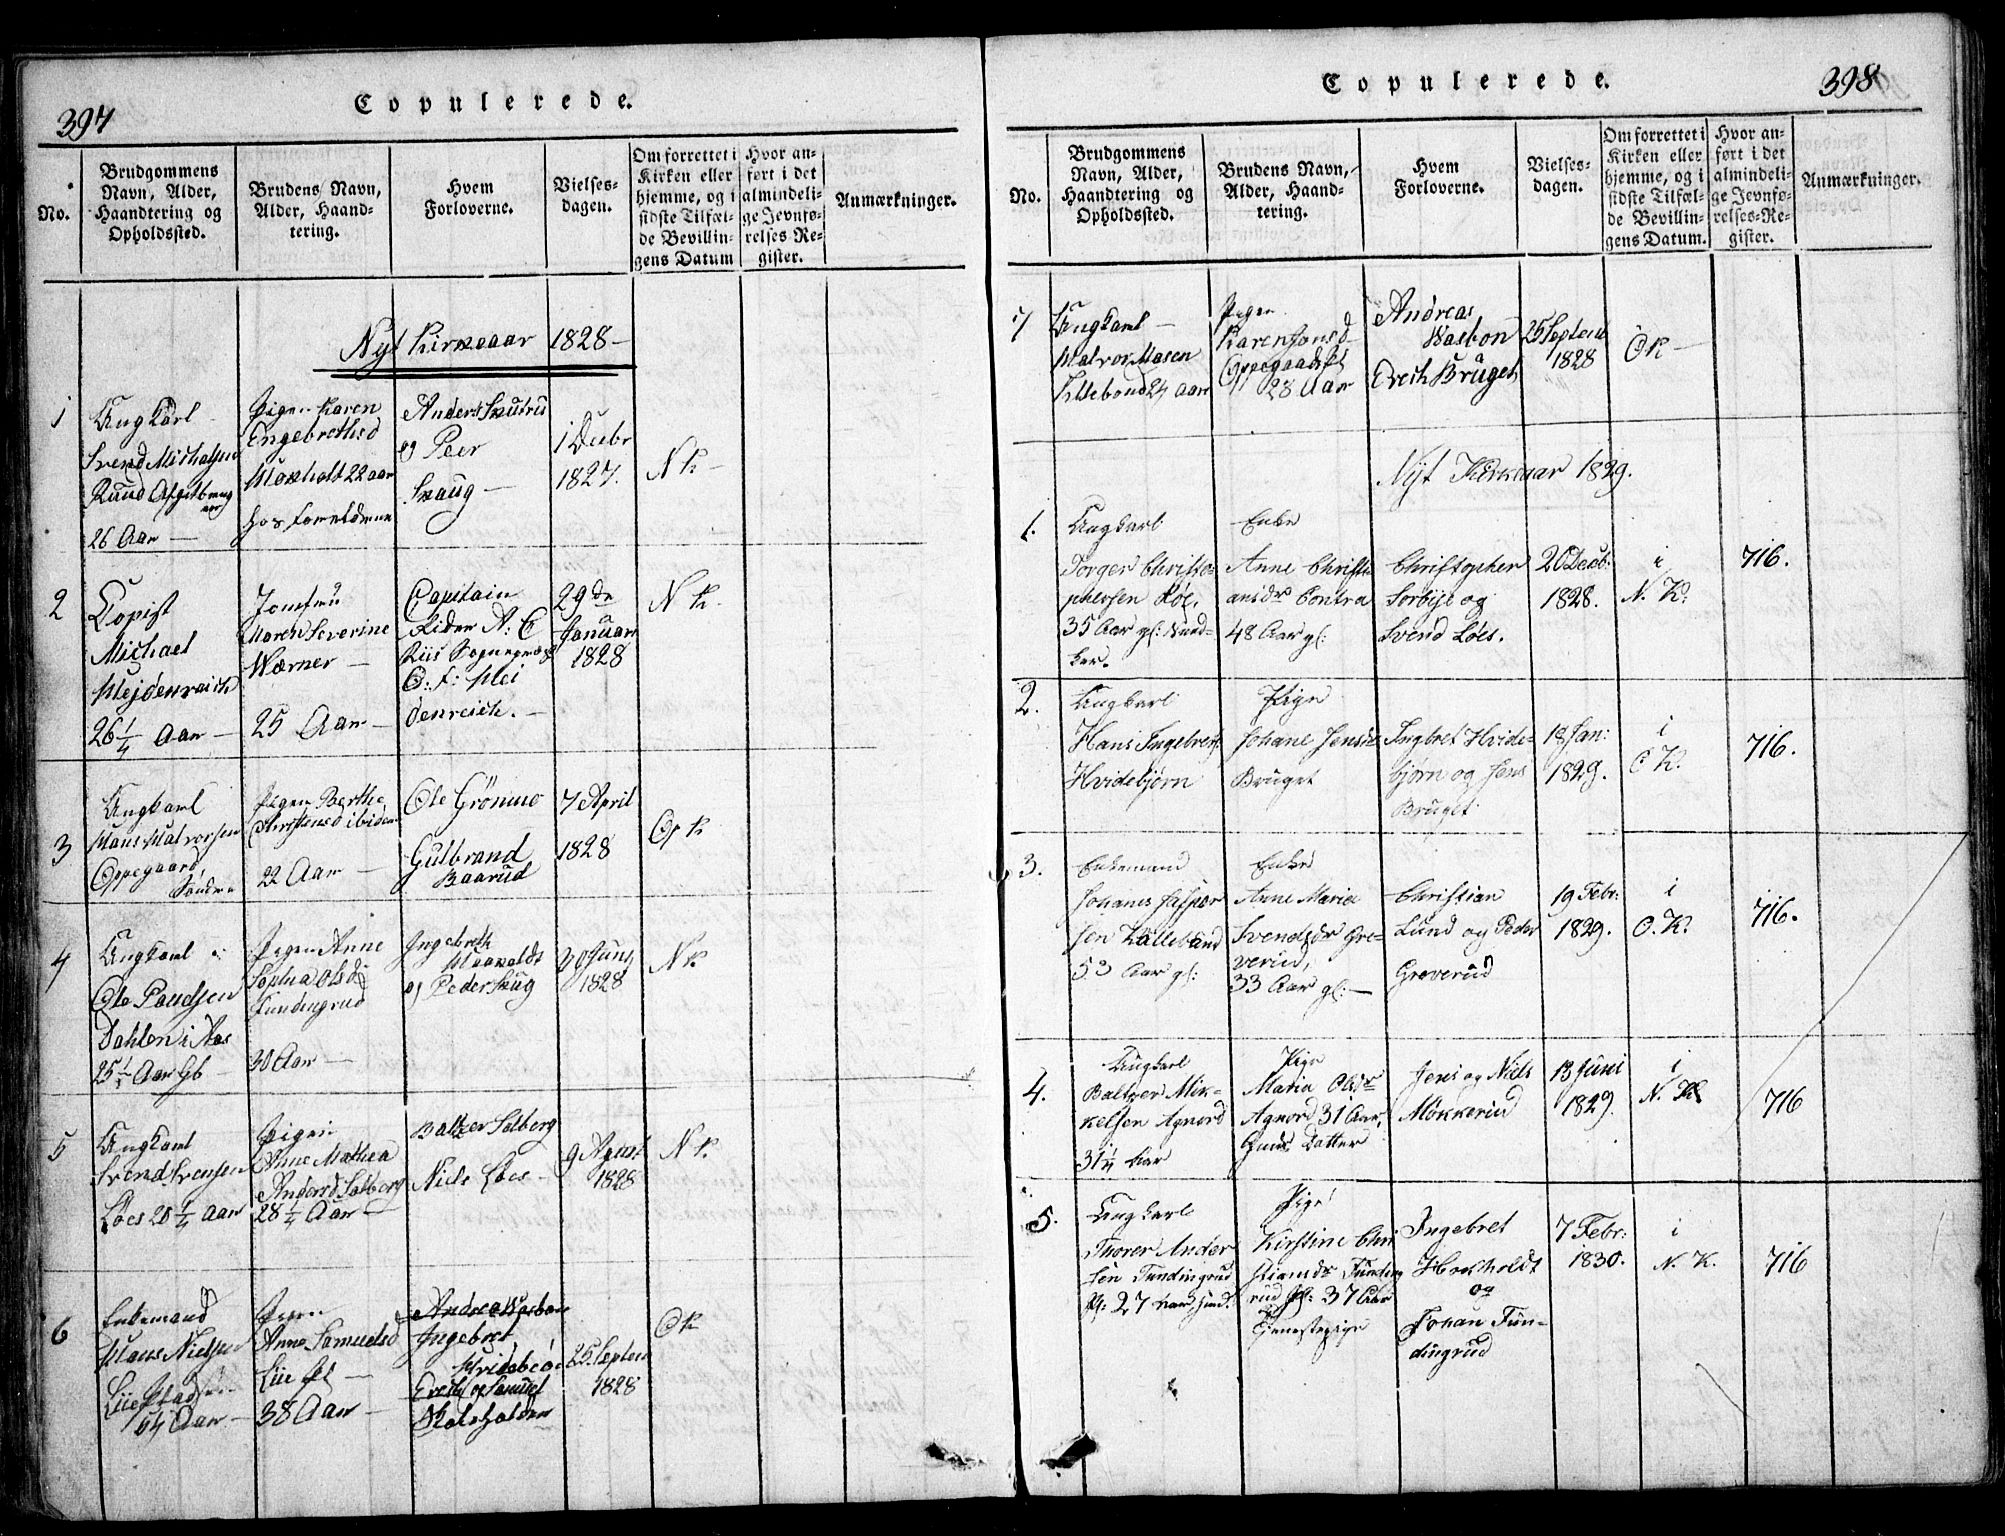 397
Copulerede.
No.
Brudgommens
Navn, Alder,
Haandtering og
Opholdssted.
Brudens Navn,
Alder, Haand-
tering.
Hvem
Forloverne.
Vielses-
dagen.
Om forrettet i
Kirken eller
hjemme, og i
sidste Tilfæl-
de Bevillin-
gens Datum
Hvor an-
ført i det
almindeli-
ge Jevnfø-
relses Re-
gister.
Anmærkninger.
Nyt Kirkeaar 1828
1
Ungkarl
Svend Michelsen
Ruud
26 Aar
Pigen Karen
Engebrethsd
22 aar
hos Foreldrene
Anders
og Peer
Skaug
1 Decbr
1827.
N K
2
Copist
Michael
Hejdenreich
26 1/4 Aar
Jomfru
Maren Severine
Wærner
25 Aar
Capitain
Riis
O: F: Hei
denreich.
29 de
Januari
1828
N K.
3
Ungkarl
Hans Halvorsen
Oppegaard
Søndre
Pigen Berthe
Christensd ibidem
22 Aar
Ole Grönmo
Gulbrand
Baarud
7 April
1828
Op K
4
Ungkarl
Ole Paulsen
Dahlen i Aas
25 1/2 Aar Gb
Pigen Anne
Sophia Olsd
Fundingrud
30 Aar
Ingebreth
og Peder Skug
20 Juni
1828
N K
5
Ungkarl
Svend Svensen
Loes 20 1/4 Aar
Pigen
Anne Mathea
Andersd Solberg
28 1/4 Aar
Baltzer Solberg
Niels Loes
9 Agust
1828
N K.
6
Enkemand
Hans Nielsen
Liie
64 Aar
Pigen
Anne Samuelsd
Liie
38 Aar
Andreas Wasbon
Ingebret
Hvidebiø
Erich og Samuel
Skoleholder
25 Septem
1828
OK
398
Copulerede.
No.
Brudgommens
Navn, Alder,
Haandtering og
Opholdssted.
Brudens Navn,
Alder, Haand-
tering.
Hvem
Forloverne.
Vielses-
dagen.
Om forrettet i
Kirken eller
hjemme, og i
sidste Tilfæl-
de Bevillin-
gens Datum.
Hvor an-
ført i det
almindeli-
ge Jevnfø-
relses-Re-
gister.
Anmærkninger.
7
Ungkarl
Halvor Hasen
Killebond 24 aar
Pigen
Karen Jonsd
Oppegaard
28 Aar
Andreas
Wasbon
Erich Bruget
25 Septem
1828
OK
Nyt Kirkeaar 1829.
1.
Ungkarl
Torger Christo-
phersen Röe,
35 Aar gl: Snid-
ker.
Enke
Anne Christi
ansdr Contra
48 Aar gl:
Christopher
Sorbye og
Svend Loes.
20 Decb:
1828.
i
N. K.
716.
2.
Ungkarl
Hans Ingebrets.
Hvidebjørn
Pige
Johane Jensd
Bruget
Ingbret Hvide-
bjørn og Jens
Bruget
18 Jan:
1829.
i
O K.
716.
3.
Enkemand
Johanes Jesper
sen Källebund
53 Aar gl:
Enke
Anne Maria
Svendsdr Gre-
verud,
33 Aar gl:
Christian
Lund og Peder
Greverud
19 Febr:
1829.
i
O. K.
716.
4.
Ungkarl
Baltzer Mik-
kelsen Agnord
31 1/4 Aar
Pige
Maria Olsdr
Agnord 31 Aar,
Gmds Datter
Jens og Niels
Mökkerud
18 Juni
1829.
i
N. K
716
5.
Ungkarl
Thorer Ander
sen Fundingrud
gl: 27 Aar,
Pige
Kirstine Chri
stiansdr Funding
rud gl: 37 Aar
Tjenestepige
Ingebret
Hoxholdt
og
Johan Fun-
dingrud
7 Febr:
1830.
i
N. K.
716